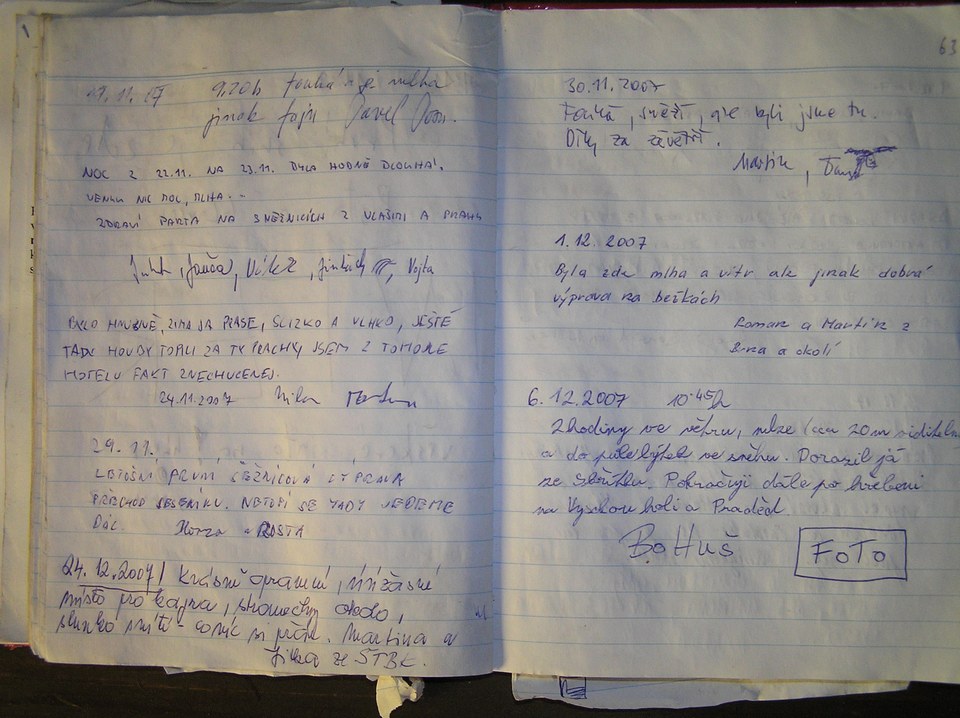 19.11.07 9,20h fouká a je mlha
jinak fajn Pavel
NOC Z 22.11. NA 23.11. BYLA HODNĚ DLOUHÁ!
VENKU NIC MOC, MLHA...
ZDRAVÍ PARTA NA SNĚŽNICÍCH Z VLAŠIMI A PRAHY
Vojta
BYLO HNUSNĚ, ZIMA JA PRASE, SLIZKO A VLHKO, JEŠTĚ
TADY HOVDY TOPILI ZA TY PRACHY, JSEM Z TOHOHLE
HOTELU FAKT ZNECHUCENEJ.
24.11.2007 Milan
29.11.
LETOŠNÍ PRVNÍ VÝPRAVA
PŘECHOD JESENÍKU. NETOPÍ SE TADY JEDEME
DÁL. Honza a ROSTA
24.12.2007/ Krásné opravení, úžasné
místo pro kajna, stromečky okolo,
slunko svítí - co víc si přát. Martina a
Jirka ze ŠTBK.
63
30.11.2007
Fouká, sněží, ale byli jsme tu.
Díky za závětří.
Martin,
1.12.2007
Byla zde mlha a vítr ale jinak dobrá
výprava na bežkách
Roman a Martin z
Brna a okolí
6.12.2007 10.45h
2 hodiny ve větru, mlze (cca 20m viditeln
a do půle lýtek ve sněhu. Dorazil já
ze Skřítku. Pokračuji dále po hřebeni
na Vysokou holi a Praděd.
BoHuš FoTo